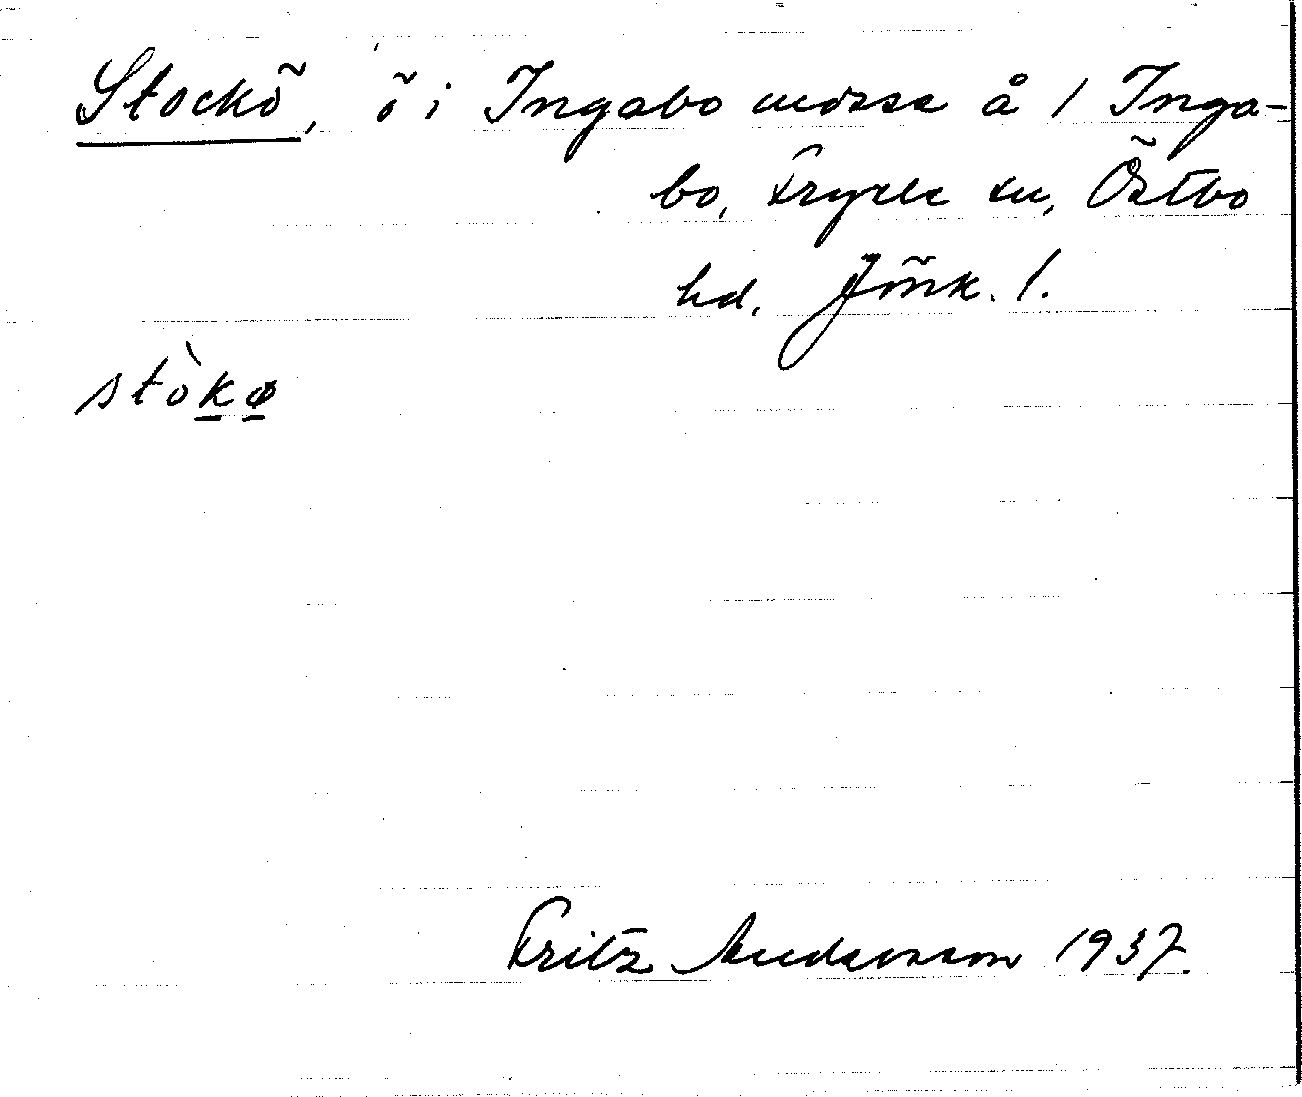 Stockö, ö i Ingabo mosse å 1 Inga-
bo, Fryele sn, Östbo
hd. Jönk. l.
stòkø
Fritz Andersson 1937.